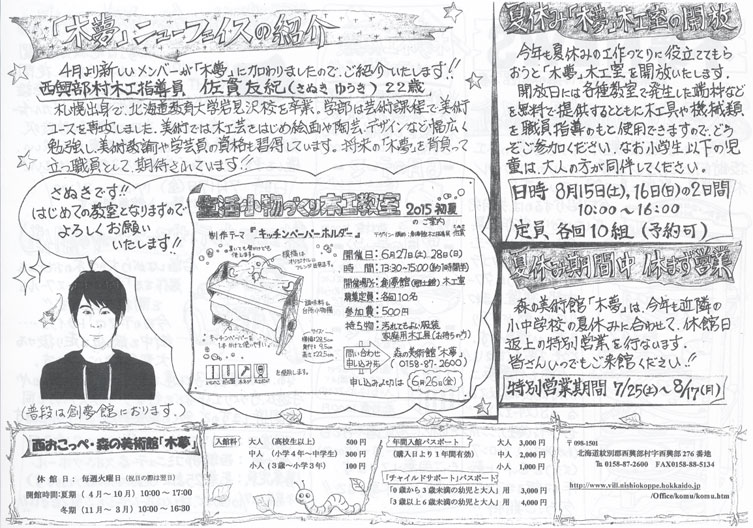 「木夢」ニューフェイスの紹介
4月より新しいメンバーが「木夢」に加わりましたので、ご紹介いたします!!
西興部村木工指導員 佐貫友紀(さぬき ゆうき) 22歳
札幌出身で、北海道教育大学岩見沢校を卒業。学部は芸術課程で美術
コースを専攻しました。美術では木工芸をはじめ絵画や陶芸、デザインなど幅広く
勉強し、美術教諭や学芸員の資格も習得しています。将来の「木夢」を背負って
立つ職員として、期待されています!!
さぬきです!!
はじめての教室となりますので
よろしくお願い
いたします!!
(普段は創夢館におります.)
生活小物づくり木工教室 2015初夏
のご案内
制作テーマ 『キッチンペーパーホルダー』
開催日:6月27日(土)、28日(日)
時 間:13:30~15:00(約1時間半)
開催場所:創夢館(郷土館)木工室
募集定員:各回10名
参加費:500円
持ち物:汚れてもよい服装
家庭用木工具(お持ちの方)
問い合わせ
申し込み先
森の美術館「木夢」
(0158-87-2600)
申し込み〆切は 6月26日(金)
模様は
オリジナルに
アレンジ出来ます。
調味料も
台所小物棚
キッチンペーパーを
サイズ
横幅28.5cm
奥行き9.5cm
高さ22.5cm
を使用します。
夏休み「木夢」木工室の開放
今年も夏休みの工作づくりに役立ててもら
おうと「木夢」木工室を開放いたします。
開放日には各種教室で発生した端材など
を無料で提供するとともに木工具や機械類
を職員指導のもと使用できますので、どう
ぞご参加ください。なお小学生以下の児
童は、大人の方が同伴してください。
日時 8月15日(土),16日(日)の2日間
10:00~16:00
定員 各回10組 (予約可)
夏休み期間中 休まず営業
森の美術館「木夢」は、今年も近隣の
小中学校の夏休みに合わせて、休館日
返上の特別営業を行ないます。
皆さんいつでもご来館ください!!
特別営業期間 7/25(土)~8/17(月)
西おこっぺ・森の美術館「木夢」
休 館 日: 毎週火曜日(祝日の際は翌日)
開館時間:夏期 (4月~10月) 10:00~17:00
冬期 (11月~3月) 10:00~16:30
入館料 大人(高校生以上) 500円
中人(小学4年~中学生) 300円
小人(3歳~小学3年) 100円
年間入館パスポート 大人 3,000円
(購入日より1年間有効) 中人 2,000円
小人 1,000円
「チャイルドサポート」パスポート
「0歳から3歳未満の幼児と大人」用 4,000円
「3歳以上6歳未満の幼児と大人」用 3,000円
〒098-1501
北海道紋別郡西興部村字西興部276番地
℡ 0158-87-2600 FAX0158-88-5134
http://www.vill.nishiokoppe.hokkaido.jp
/Office/komu/komu.htm